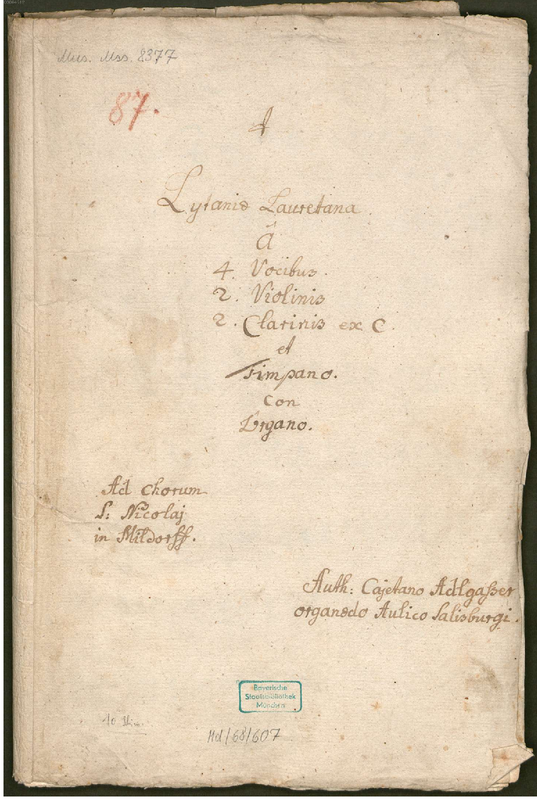 Mus. Mss. 8377
87.
Lytaniæ Lauretanæ
â
4. Vocibus.
2. Violinis
2. Clarinis ex C.
et
Timpano.
Con
Organo.
Ad Chorum
S: Nicolaj
in Mildorff.
Auth: Cajetano Adlgasser
organædo Aulico Salisburgi.
Bayerische
Staatsbibliothek
München
Hd/68/607